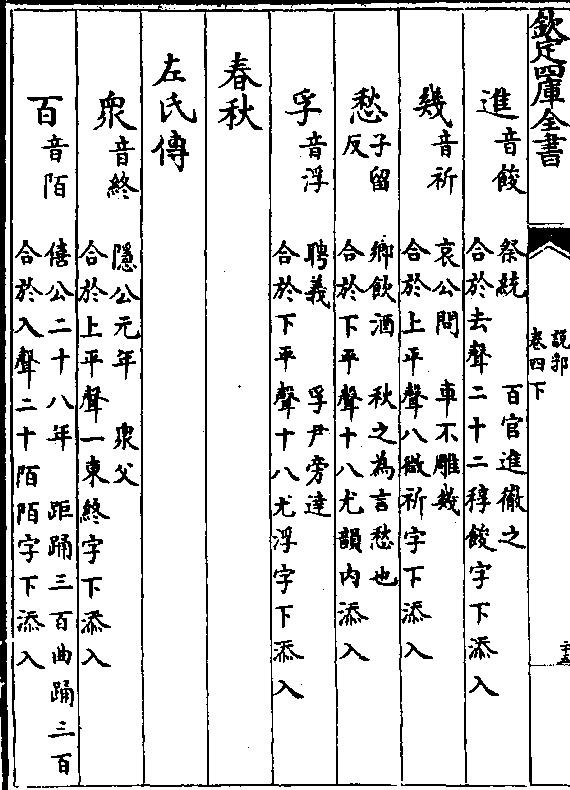 欽定四庫全書
說郛
卷四下
進
音餕
祭統 百官進徹之
合於去聲二十二稕餕字下添入
幾
音祈
哀公問 車不雕幾
合於上平聲八微祈字下添入
愁
子留
反
鄉飲酒 秋之為言愁也
合於下平聲十八尤韻内添入
孚
音浮
聘義 孚尹旁達
合於下平聲十八尤浮字下添入
春秋
左氏傳
眾
音終
隱公元年 眾父
合於上平聲一東終字下添入
百
音陌
僖公二十八年 距踊三百曲踊三百
合於入聲二十陌陌字下添入